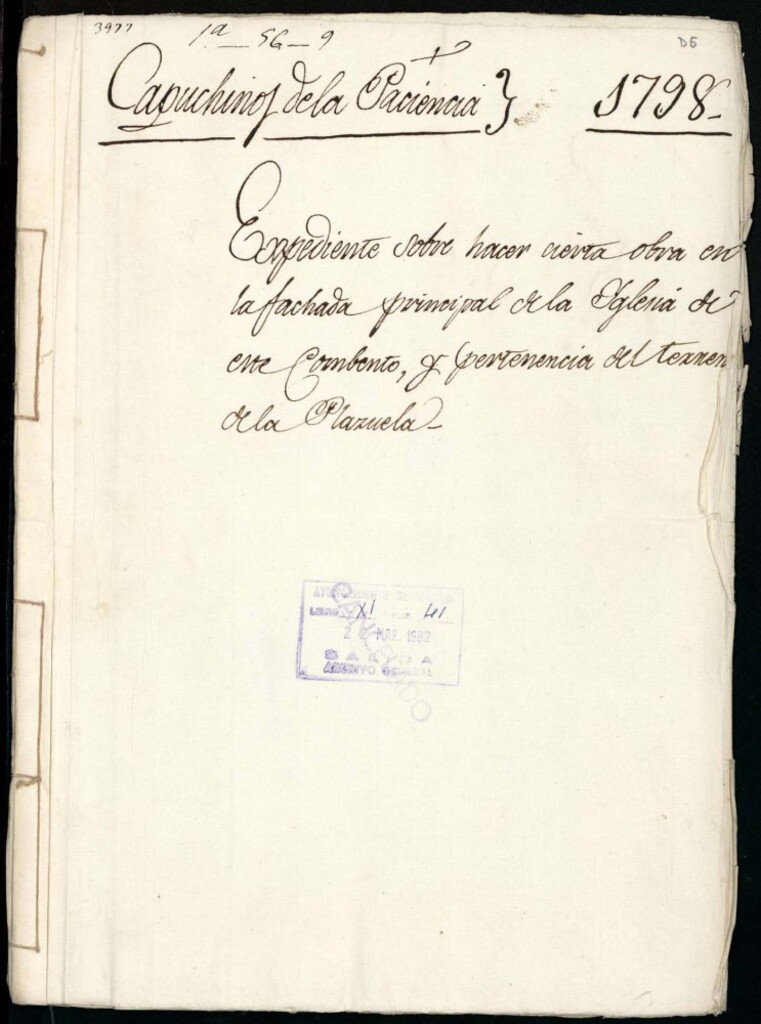 3977
1ª — 56 — 9
D5
Capuchinos de la Paciencia } 1798
Expediente sobre hacer cierta obra en
la fachada principal de la Yglesia de
este Combento, y pertenencia del terren
de la Plazuela
AYUNTAMIENTO DE MADRID
XI 41
2 MAR. 1982
SALIDA
ARCHIVO GENERAL
CANCELADO